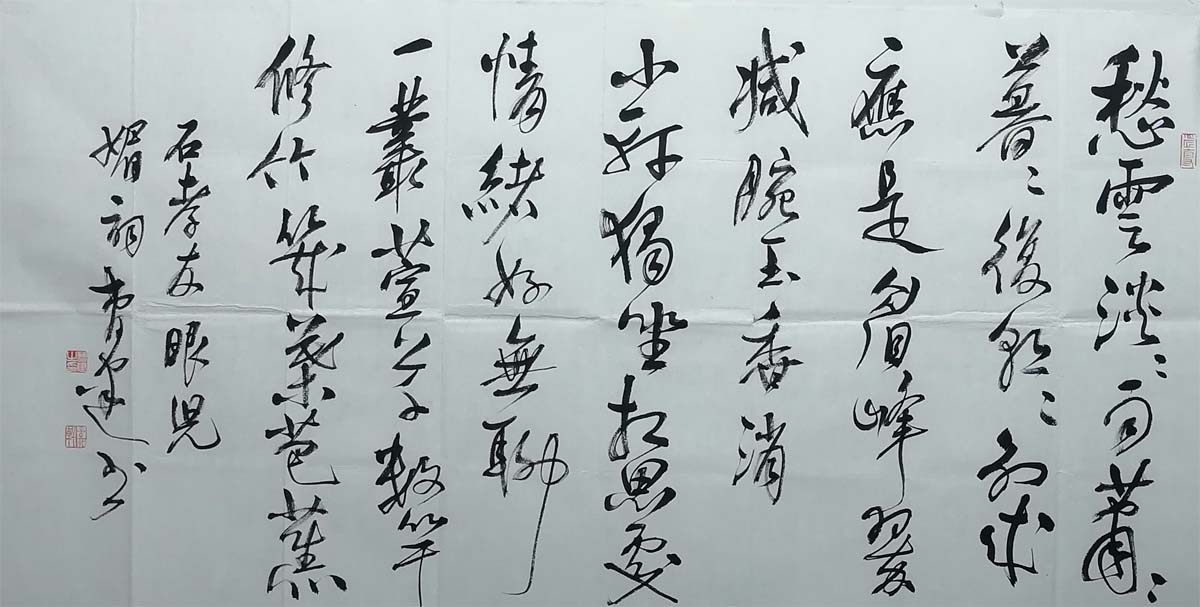 愁雲淡〻雨蕭〻
暮〻復朝〻別來
應是眉峰翠
減腕玉香消
小軒獨坐相思處
情緒好無聊
一叢萱草數竿
修竹幾葉芭蕉
石孝友眼児
媚詞 書